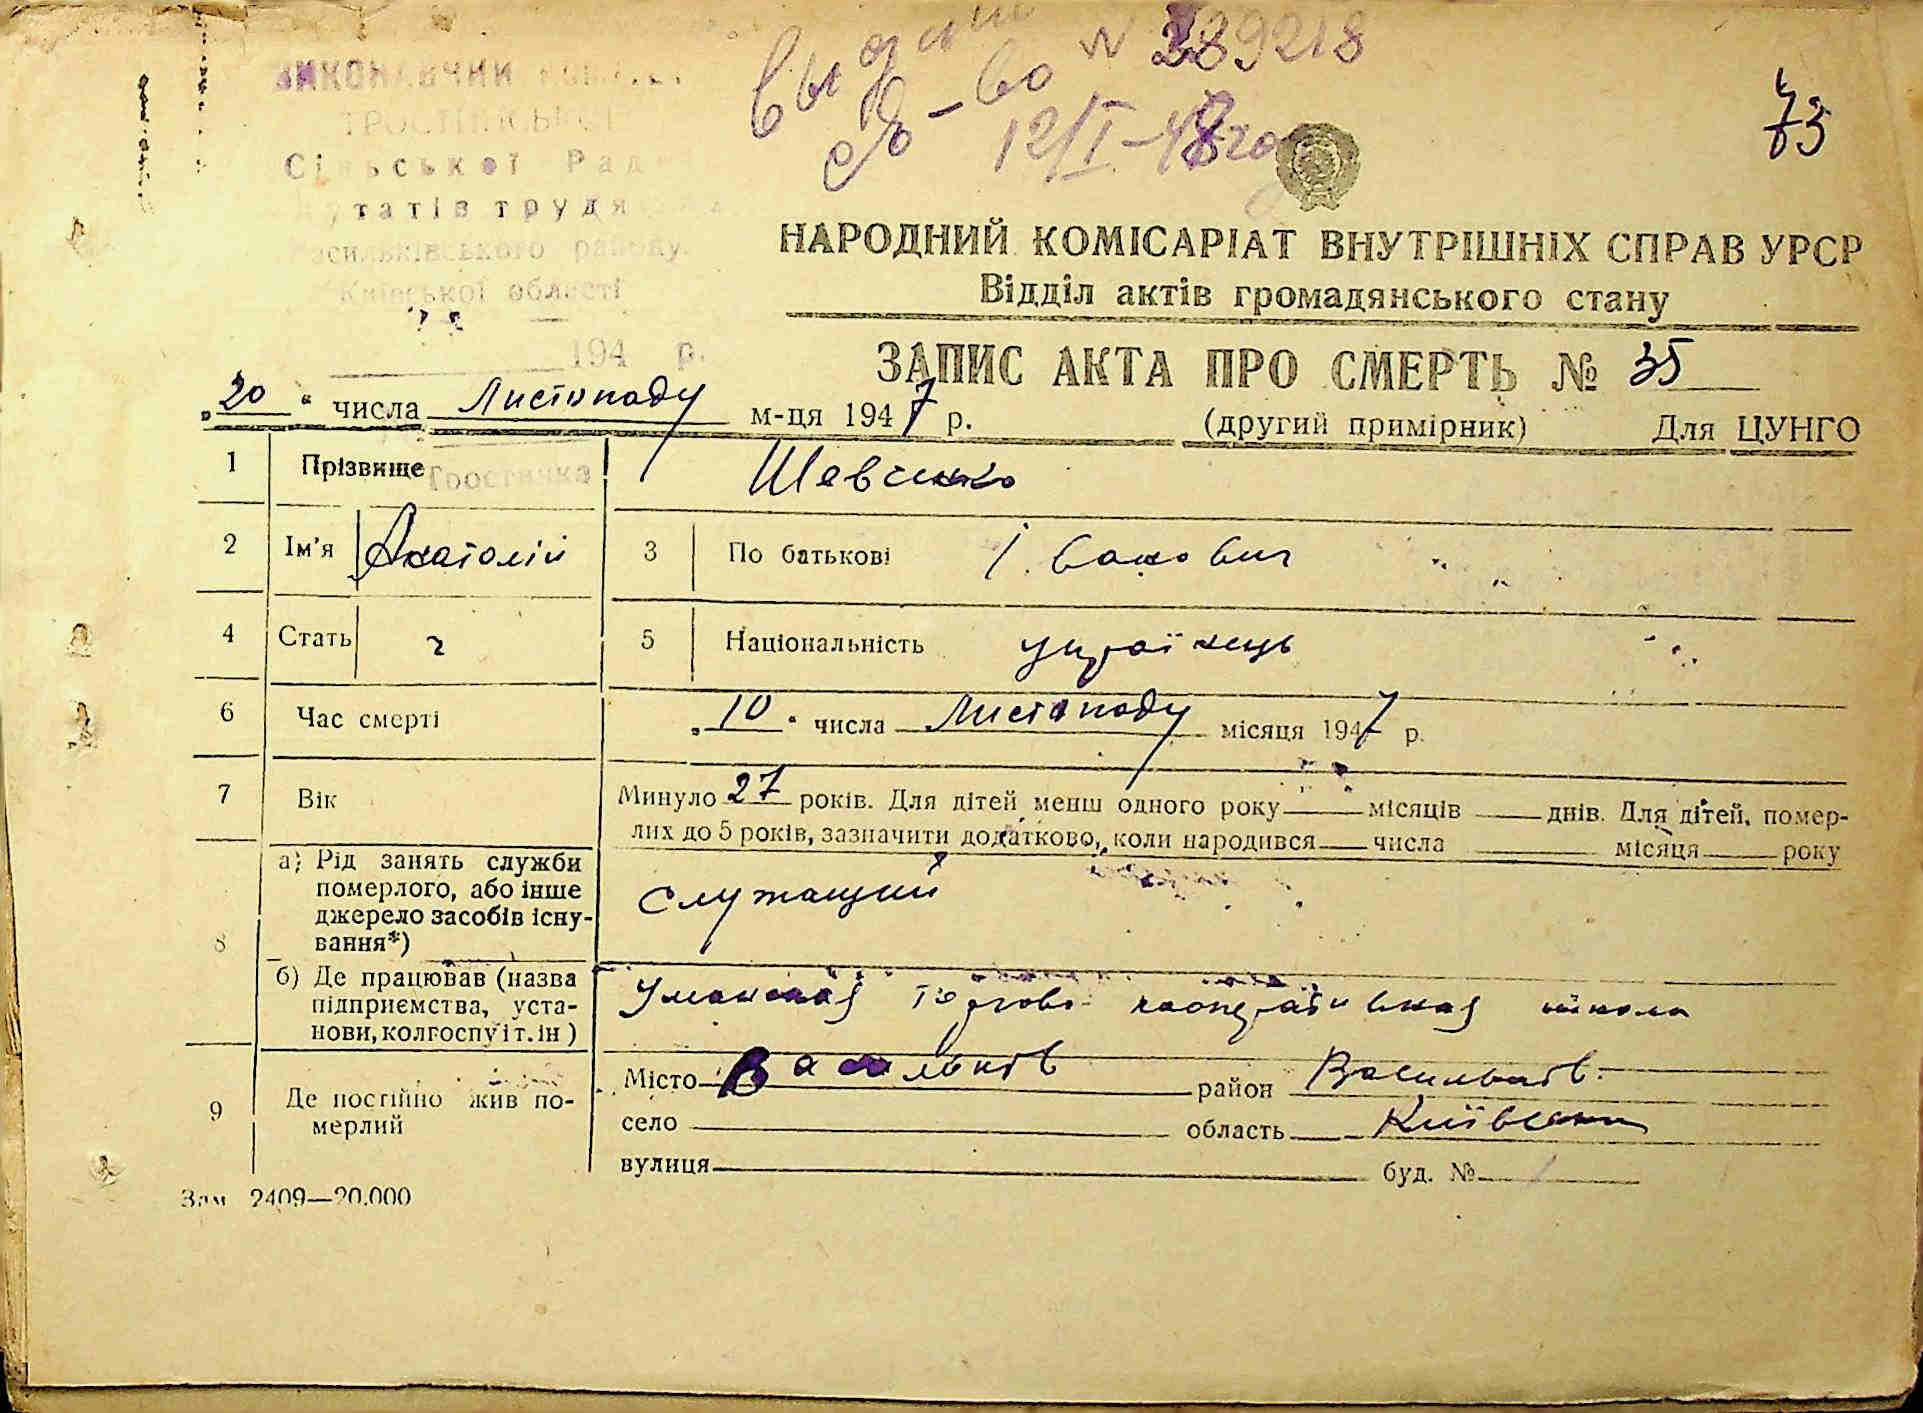 Выдано
с-во № 389218
12/I-48 года
73
ВИКОНАВЧИЙ
ТРОСТИНСЬКОЇ
Сільської Рад
татів трудя
Васильківського району
Київської області
194 р.
НАРОДНИЙ КОМІСАРІАТ ВНУТРІШНІХ СПРАВ УРСР
Відділ актів громадянського стану
ЗАПИС АКТА ПРО СМЕРТЬ № 35
„20“ числа Листопаду м-ця 1947 р. (другий примірник) Для ЦУНГО
1 Прізвище Шевченко
Тростинка
2 Ім'я Анатолій 3 По батькові Іванович
4 Стать ч 5 Національність українець
6 Час смерті „10“ числа Листопаду місяця 1947 р.
7 Вік Минуло 27 років. Для дітей менш одного року місяців днів. Для дітей, помер-
лих до 5 років, зазначити додатково, коли народився числа місяця року
8 а) Рід занять служби
померлого, або інше
джерело засобів існу-
вання*)
служащий
б) Де працював (назва
підприємства, уста-
нови, колгоспу і т. ін)
Уманская торгово-кооперативная школа
9 Де постійно жив по-
мерлий
Місто Васильків район Васильків.
село область Київська
вулиця буд. №
Зам 2409—20.000